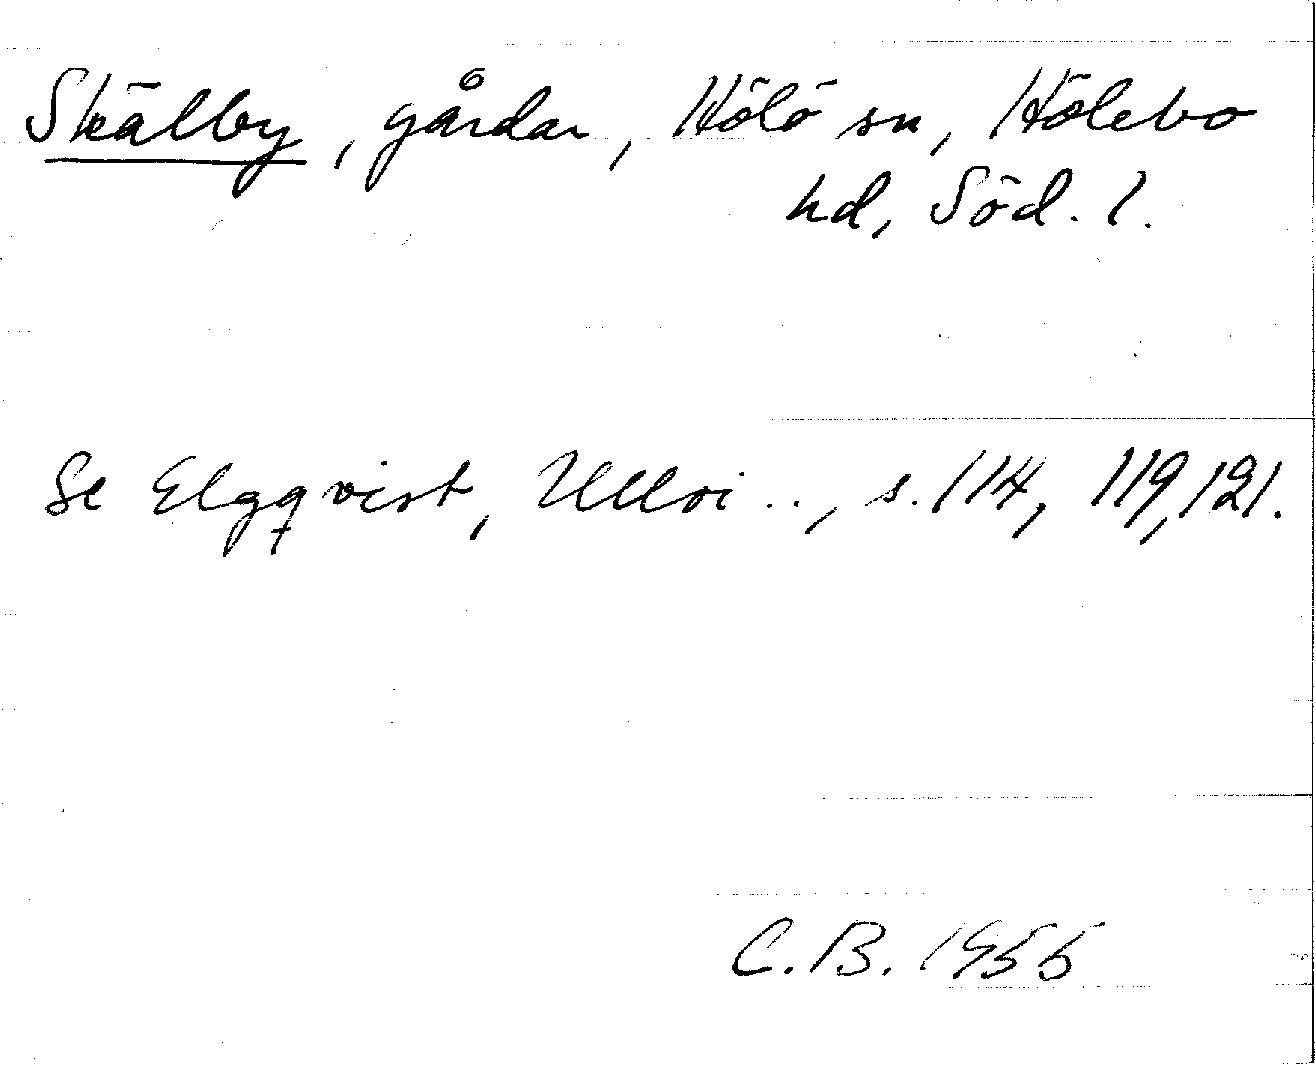 Skälby, gårdar, Hölö sn, Hölebo
hd, Söd. l.
Se Elgqvist, Ullvi.., s. 114, 119, 121.
C.B. 1955